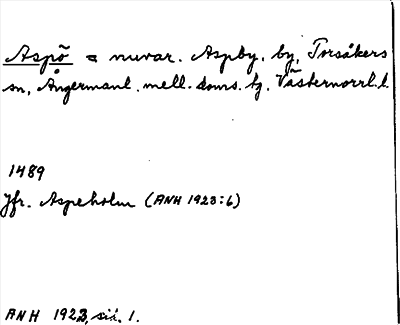 Aspö = nuvar. Aspby, by, Torsåkers
sn, Ångermanl. mell. doms. tg. Västernorrl. l.
1489
Jfr. Aspeholm (ANH 1923:6)
ANH 1923, sid. 1.